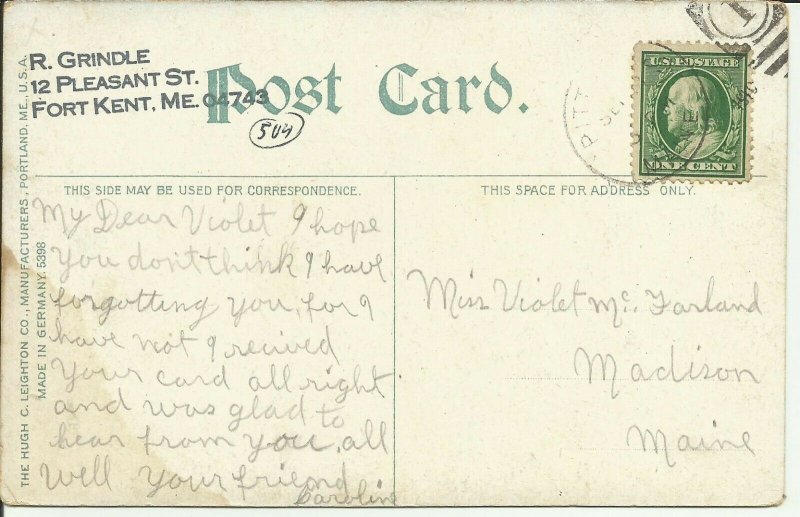 R. GRINDLE
12 PLEASANT ST.
FORT KENT, ME. 04743
Post Card.
504
PITT
1
U.S. POSTAGE
ONE CENT
THE HUGH C. LEIGHTON CO., MANUFACTURERS, PORTLAND, ME., U.S.A.
MADE IN GERMANY. 5398
THIS SIDE MAY BE USED FOR CORRESPONDENCE.
My Dear Violet I hope
you dont think I have
forgotting you, for I
have not I recived
your card all right
and was glad to
hear from you. all
well your friend
Caroline
THIS SPACE FOR ADDRESS ONLY.
Miss Violet Mc. Farland
Madison
Maine